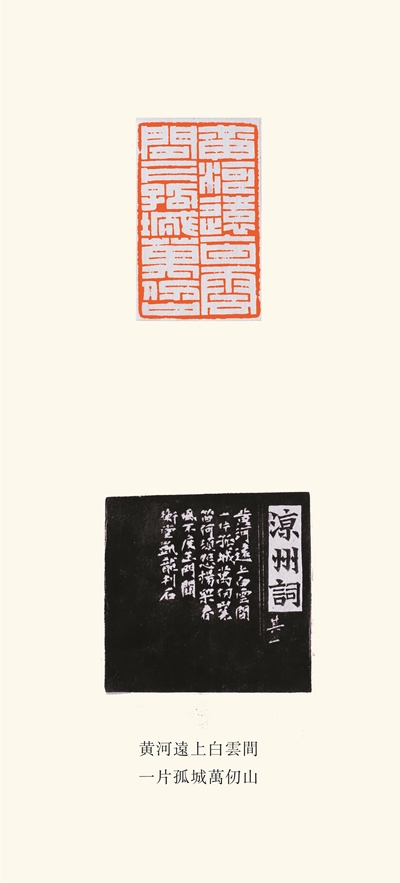 黄河遠上白雲
間一片孤城萬仞山
涼州詞
其一
黄河遠上白雲間
一片孤城萬仞山羌
笛何須怨楊柳春
風不度玉門關
石
黄河遠上白雲間
一片孤城萬仞山